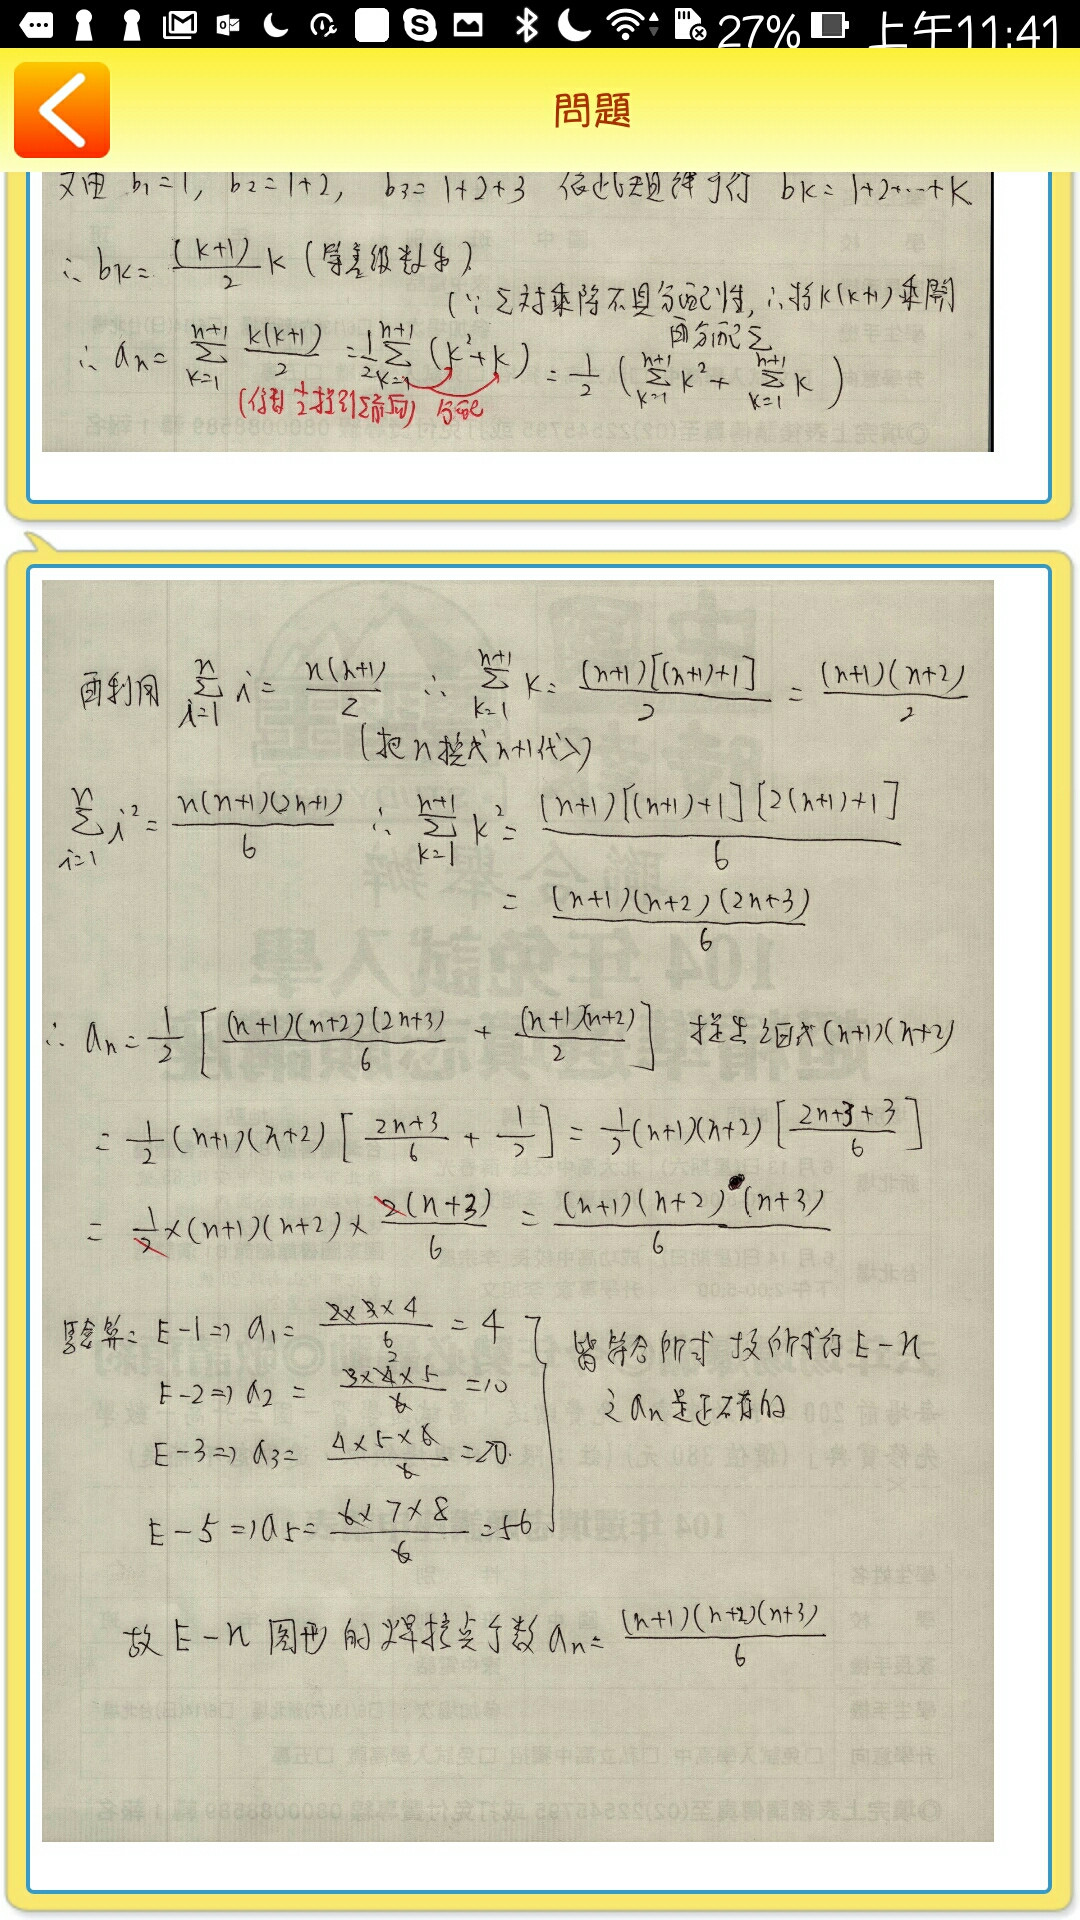 27% 上午11:41
問題
又由 b₁=1, b₂=1+2, b₃=1+2+3 依此規律可得 bk=1+2+…+k
∴ bk= (k+1)/2 k (等差級數和)
(∵ Σ對乘除不具分配性, ∴將k(k+1)乘開
再分配Σ
∴ an= Σ(k=1→n+1) k(k+1)/2 = 1/2 Σ(k=1→n+1) (k²+k) = 1/2 (Σ(k=1→n+1) k² + Σ(k=1→n+1) k)
分配
再利用 Σ(i=1→n) i = n(n+1)/2 ∴ Σ(k=1→n+1) k= (n+1)[(n+1)+1]/2 = (n+1)(n+2)/2
(把n換成n+1代入)
Σ(i=1→n) i² = n(n+1)(2n+1)/6 ∴ Σ(k=1→n+1) k² = (n+1)[(n+1)+1][2(n+1)+1]/6
= (n+1)(n+2)(2n+3)/6
∴ an= 1/2 [(n+1)(n+2)(2n+3)/6 + (n+1)(n+2)/2] 提出公因式(n+1)(n+2)
= 1/2 (n+1)(n+2) [2n+3/6 + 1/2] = 1/2 (n+1)(n+2) [2n+3+3/6]
= 1/2 ×(n+1)(n+2)× 2(n+3)/6 = (n+1)(n+2)(n+3)/6
驗算: E-1⇒ a₁= 2×3×4/6 = 4
E-2⇒ a₂ = 3×4×5/6 =10
E-3⇒ a₃= 4×5×6/6 =20
E-5⇒ a₅= 6×7×8/6 =56
皆符合所求 故所求得E-n
之an是正確的
故E-n 圖形的焊接點個數 an= (n+1)(n+2)(n+3)/6